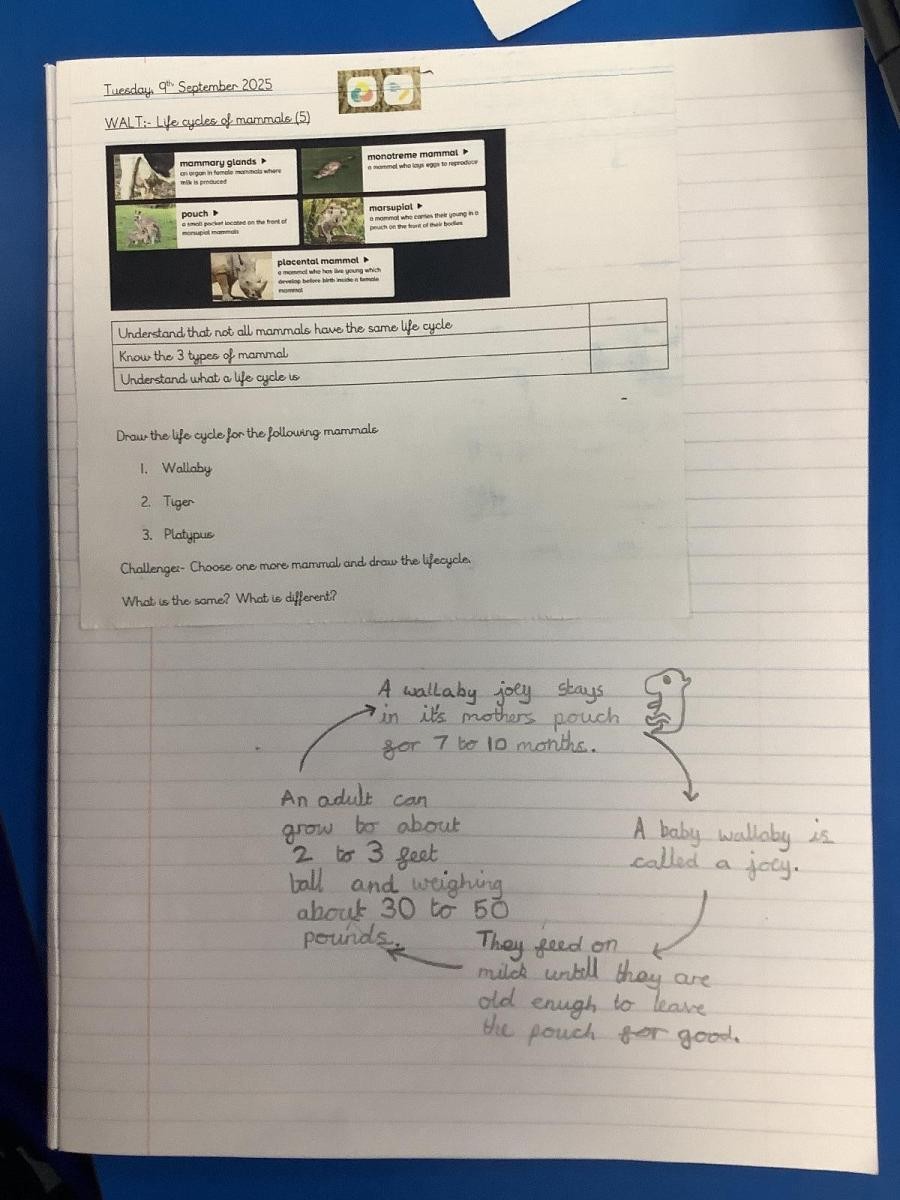 Tuesday, 9th September 2025
WALT:- Life cycles of mammals (5)
mammary glands
an organ in female mammals where
milk is produced
monotreme mammal
a mammal who lays eggs to reproduce
pouch
a small pocket located on the front of
marsupial mammals
marsupial
a mammal who carries their young in a
pouch on the front of their bodies
placental mammal
a mammal who has live young which
develop before birth inside a female
mammal
Understand that not all mammals have the same life cycle
Know the 3 types of mammal
Understand what a life cycle is
Draw the life cycle for the following mammals
1. Wallaby
2. Tiger
3. Platypus
Challenge:- Choose one more mammal and draw the lifecycle.
What is the same? What is different?
A wallaby joey stays
in it's mothers pouch
for 7 to 10 months.
A baby wallaby is
called a joey.
They feed on
milck untill they are
old enugh to leave
the pouch for good.
An adult can
grow to about
2 to 3 feet
tall and weighing
about 30 to 50
pounds.